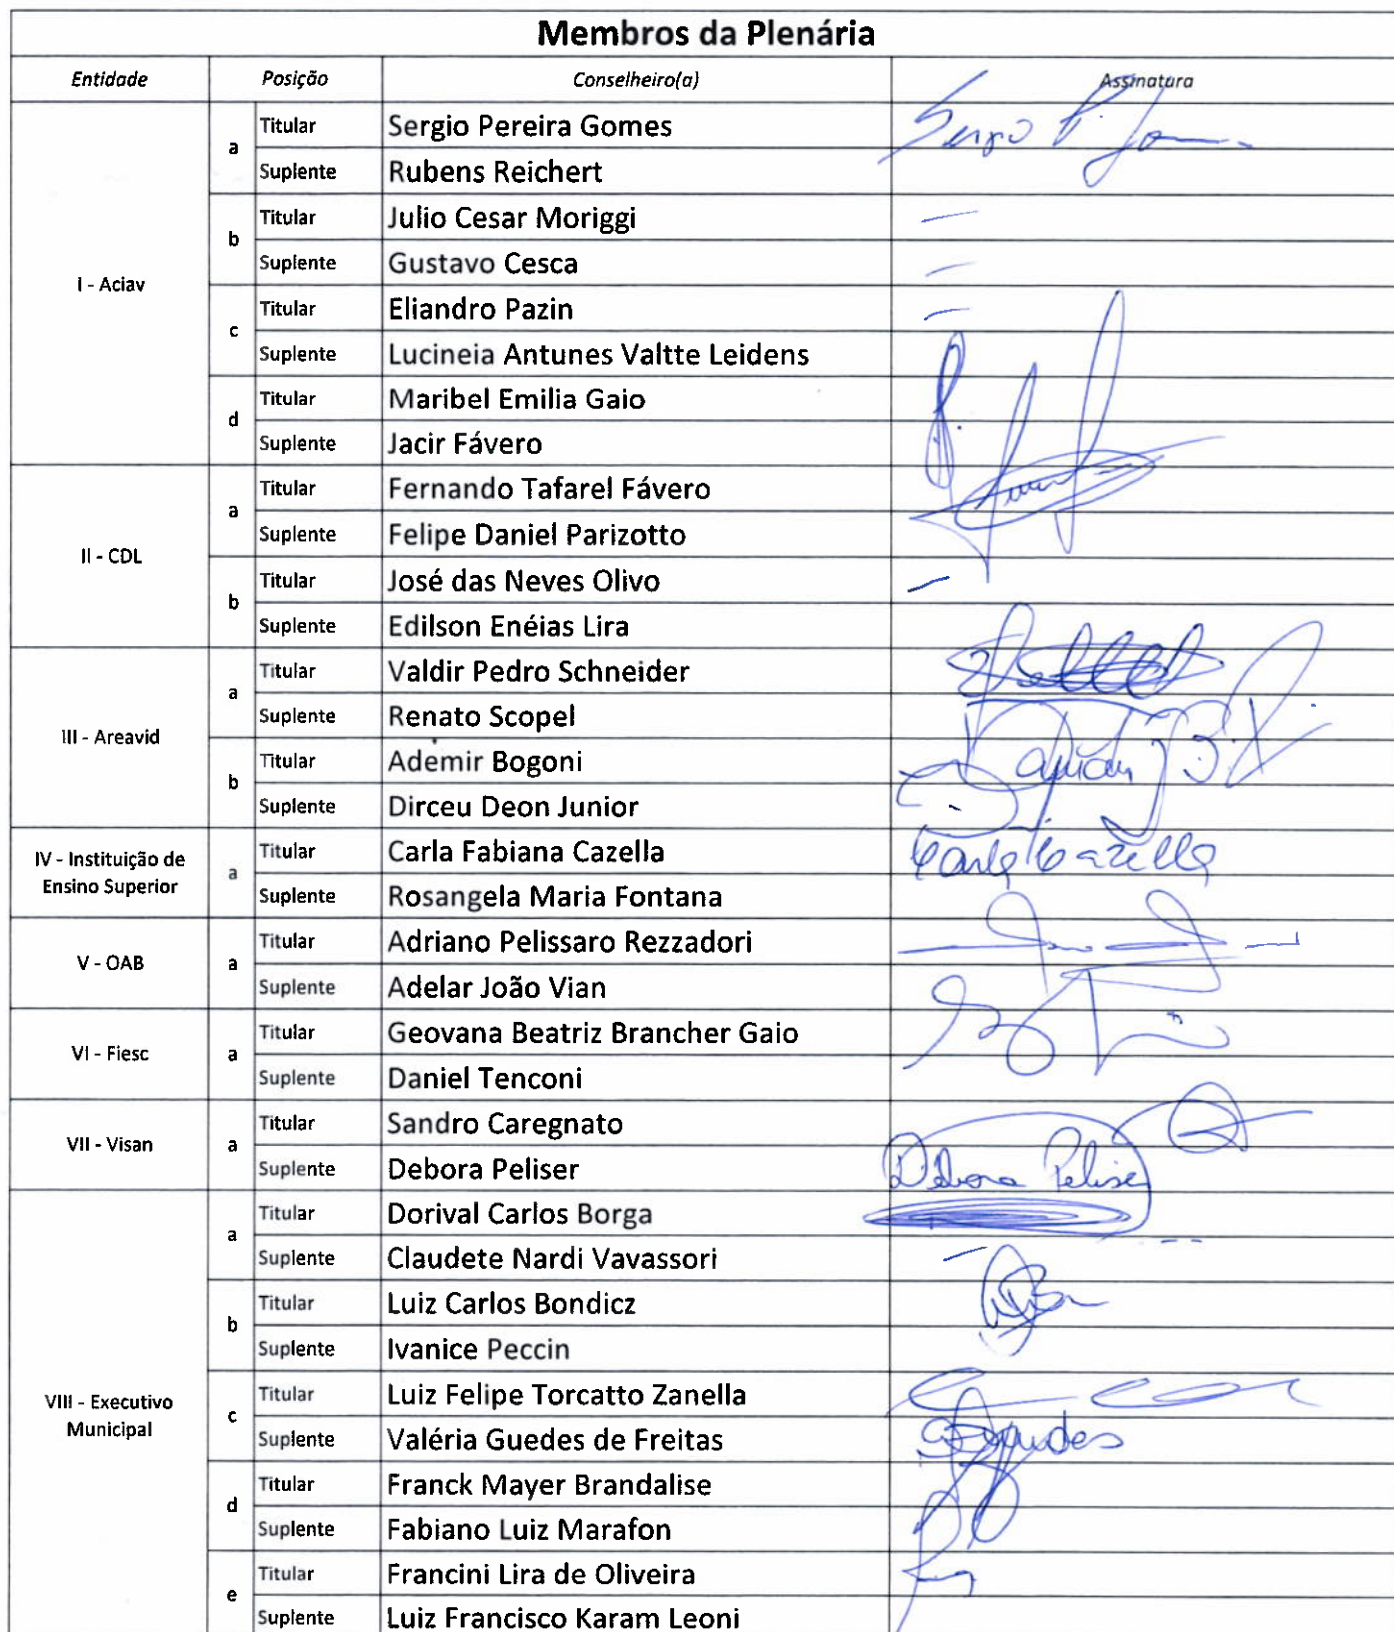 Membros da Plenária
Entidade Posição Conselheiro(a) Assinatura
I - Aciav
a Titular Sergio Pereira Gomes Sergio P. Gomes
Suplente Rubens Reichert
b Titular Julio Cesar Moriggi —
Suplente Gustavo Cesca —
c Titular Eliandro Pazin —
Suplente Lucineia Antunes Valtte Leidens
d Titular Maribel Emilia Gaio
Suplente Jacir Fávero
II - CDL
a Titular Fernando Tafarel Fávero
Suplente Felipe Daniel Parizotto
b Titular José das Neves Olivo —
Suplente Edilson Enéias Lira
III - Areavid
a Titular Valdir Pedro Schneider
Suplente Renato Scopel
b Titular Ademir Bogoni
Suplente Dirceu Deon Junior
IV - Instituição de
Ensino Superior
a Titular Carla Fabiana Cazella Carla Cazella
Suplente Rosangela Maria Fontana
V - OAB
a Titular Adriano Pelissaro Rezzadori
Suplente Adelar João Vian
VI - Fiesc
a Titular Geovana Beatriz Brancher Gaio
Suplente Daniel Tenconi
VII - Visan
a Titular Sandro Caregnato
Suplente Debora Peliser Debora Peliser
VIII - Executivo
Municipal
a Titular Dorival Carlos Borga
Suplente Claudete Nardi Vavassori —
b Titular Luiz Carlos Bondicz
Suplente Ivanice Peccin
c Titular Luiz Felipe Torcatto Zanella
Suplente Valéria Guedes de Freitas
d Titular Franck Mayer Brandalise
Suplente Fabiano Luiz Marafon
e Titular Francini Lira de Oliveira
Suplente Luiz Francisco Karam Leoni